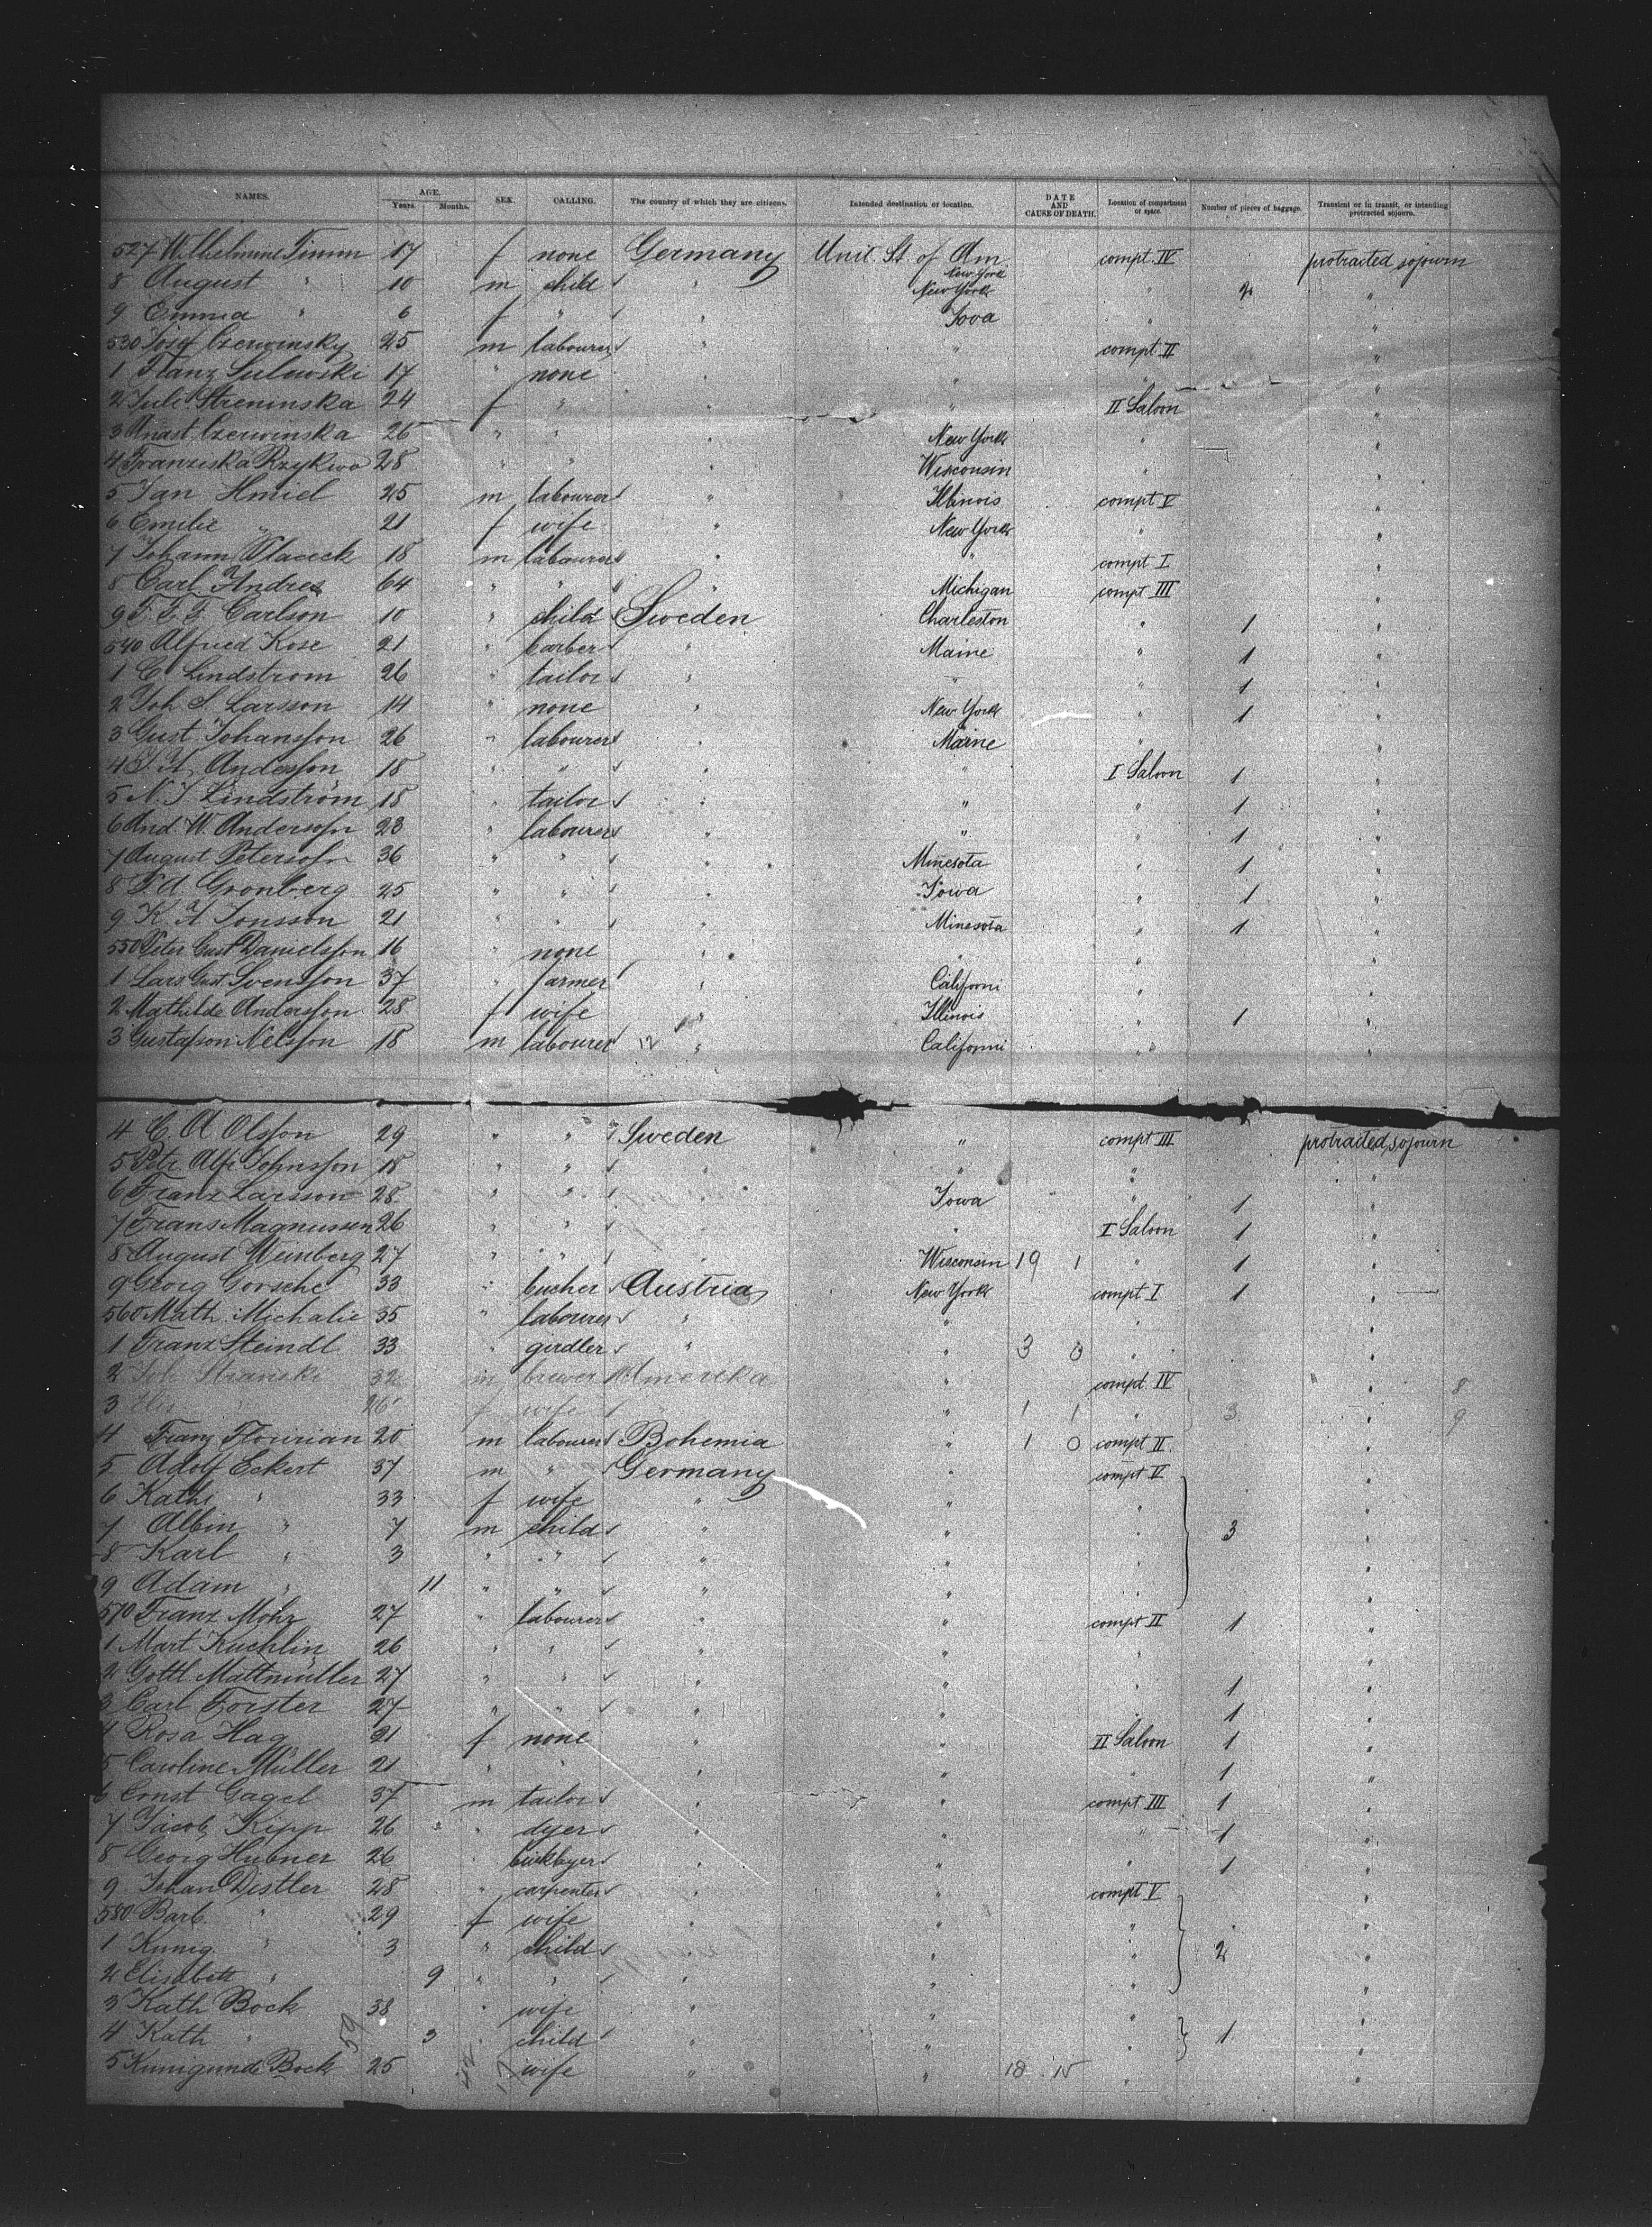 NAMES. AGE. Years. Months. SEX. CALLING. The country of which they are citizens. Intended destination or location. DATE AND CAUSE OF DEATH. Location of compartment or space. Number of pieces of baggage. Transient or in transit, or intending protracted sojourn.
527 Wilhelmine Timm 17 f none Germany Unit. St. of Am. New York compt. IV protraited sojourn
8 August " 10 m child " New York " 2 "
9 Emma " 6 f " " Iova " "
530 Josef Czerwinsky 25 m labourer " " compt II "
1 Franz Sulawski 17 " none " " "
2 Juli Streninska 24 f " " " II Saloon "
3 Anast. Czerwinska 26 " " " New York " "
4 Franziska Rzykwa 28 " " " Wisconsin " "
5 Jan Hmiel 25 m labourer " Illinois compt V "
6 Emilie " 21 f wife " New York " "
7 Johann Placeck 18 m labourer " " compt I "
8 Carl Andres 64 " " " Michigan compt III "
9 F. F. F. Carlson 10 " child Sweden Charleston " 1 "
540 Alfred Kose 21 " barber " Maine " 1 "
1 C. Lindstrom 26 " tailor " " " 1 "
2 Joh S. Larsson 14 " none " New York " 1 "
3 Gust Johansson 26 " labourer " Maine " "
4 J. A. Andersson 18 " " " " I Saloon 1 "
5 N. J. Lindström 18 " tailor " " " 1 "
6 And. W. Andersson 23 " labourer " " " 1 "
7 August Petersson 36 " " " Minesota " 1 "
8 F. d. Gronberg 25 " " " Iowa " 1 "
9 K. A. Jonsson 21 " " " Minesota " 1 "
550 Peter Gust Danielsson 16 " none " " " "
1 Lars Gust. Svensson 37 " farmer " Californi " "
2 Mathilde Andersson 28 f wife " Illinois " 1 "
3 Gustafson Nelsson 18 m labourer " Californi " "
4 C. A. Olsson 29 " " Sweden " compt III protraited sojourn
5 Petr. Alfr Johnsson 18 " " " " " "
6 Franz Larsson 28 " " " Iowa " 1 "
7 Frans Magnussen 26 " " " " I Saloon 1 "
8 August Weinberg 27 " " " Wisconsin 19 1 " 1 "
9 Georg Gorsche 33 " bucher Austria New York compt I 1 "
560 Math. Michalic 35 " labourer " " " "
1 Franz Steindl 33 " girdler " " 3 0 " "
2 Joh Stranski 32 m brewer Amereka " compt. IV " 8
3 Elis " 26 f wife " " 1 1 " 3 " 9
4 Franz Flourian 20 m labourer Bohemia " 1 0 compt II "
5 Adolf Eckert 37 m " Germany " compt V "
6 Kathi " 33 f wife " " " "
7 Albin " 7 m child " " " 3 "
8 Karl " 3 " " " " " "
9 Adam " 11 " " " " " "
570 Franz Mohr 27 " labourer " " compt II 1 "
1 Mart Kuchlin 26 " " " " " "
2 Gottl Mattmüller 27 " " " " " 1 "
3 Carl Forster 27 " " " " " 1 "
4 Rosa Hag 21 f none " " II Saloon 1 "
5 Caroline Müller 21 " " " " " 1 "
6 Ernst Gagel 37 m tailor " " compt III 1 "
7 Jacob Kipp 26 " dyer " " " 1 "
8 Georg Hubner 26 " " " " 1 "
9 Johan Distler 28 " carpenter " " compt V "
580 Barb. " 29 f wife " " " "
1 Kunig. " 3 " child " " " 2 "
2 Elisabett " 9 " " " " " "
3 Kath Bock 58 " wife " " " "
4 Kath " 3 " child " " " 1 "
5 Kunigunde Bock 25 wife " " 18 15 " "
59